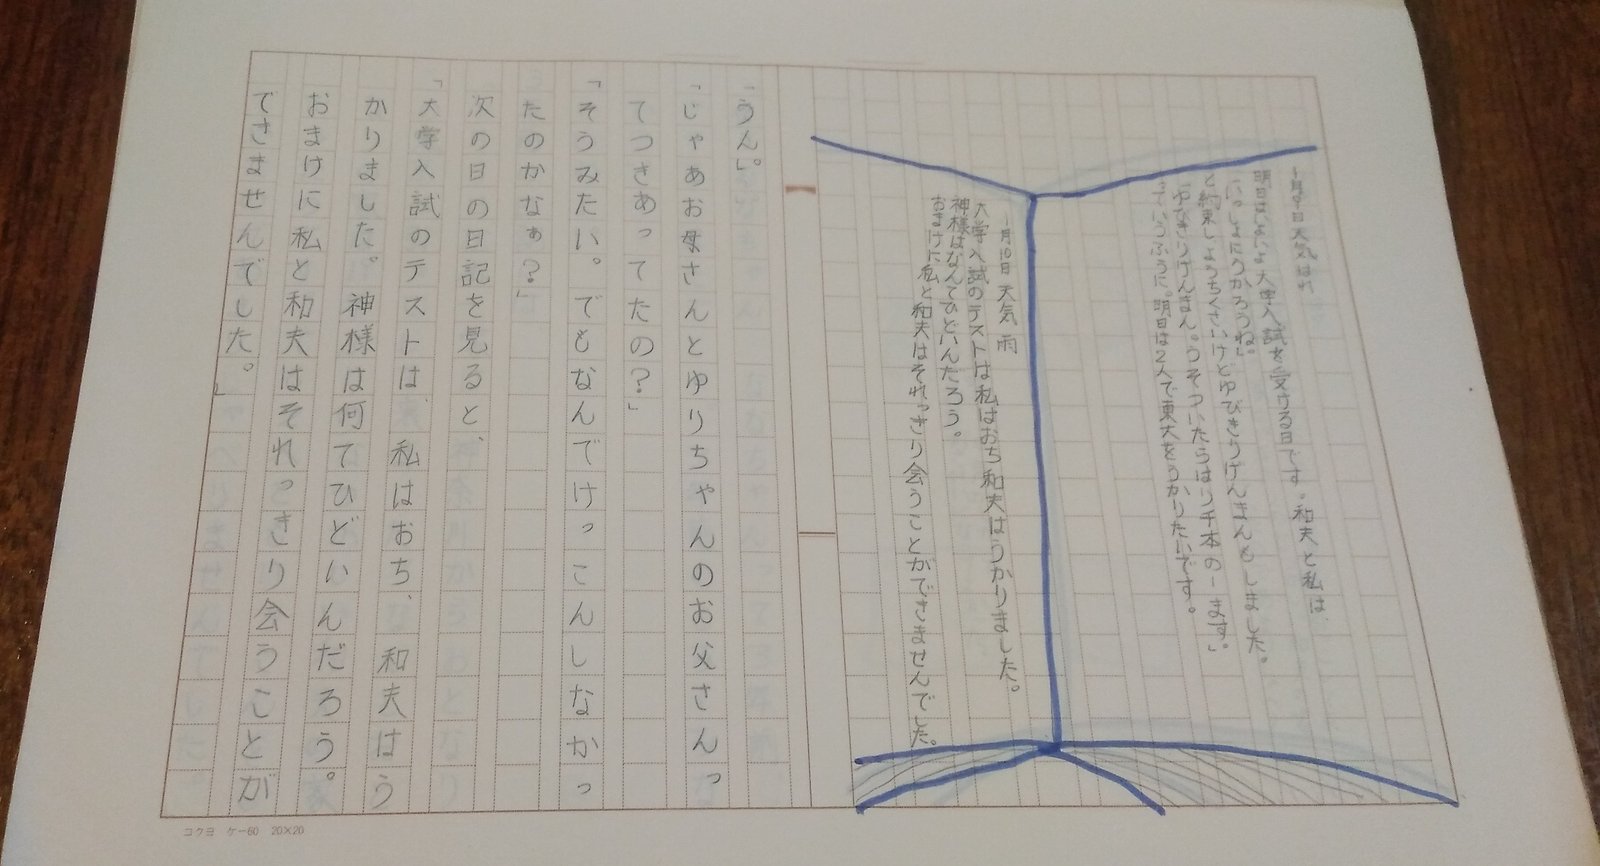 1月9日天気はれ 和夫と私は
明日はいよいよ大学入試を受ける日です。
「いっしょにうかろうね。」
と約束しようちくさいけどゆびきりげんまんもしました。
「ゆびきりげんまん。うそついたらはり千本のーます。」
っていうふうに。明日は2人で東大をうかりたいです。
1月10日 天気 雨
大学入試のテストは私はおち和夫はうかりました。
神様はなんてひどいんだろう。
おまけに私と和夫はそれっきり会うことができませんでした。
「うん。」
「じゃあお母さんとゆりちゃんのお父さんっ
てつきあってたの?」
「そうみたい。でもなんでけっこんしなかっ
たのかなぁ?」
次の日の日記を見ると、
「大学入試のテストは、私はおち、和夫はう
かりました。神様は何てひどいんだろう。
おまけに私と和夫はそれっきり会うことが
できませんでした。」
コクヨ ケー60 20×20